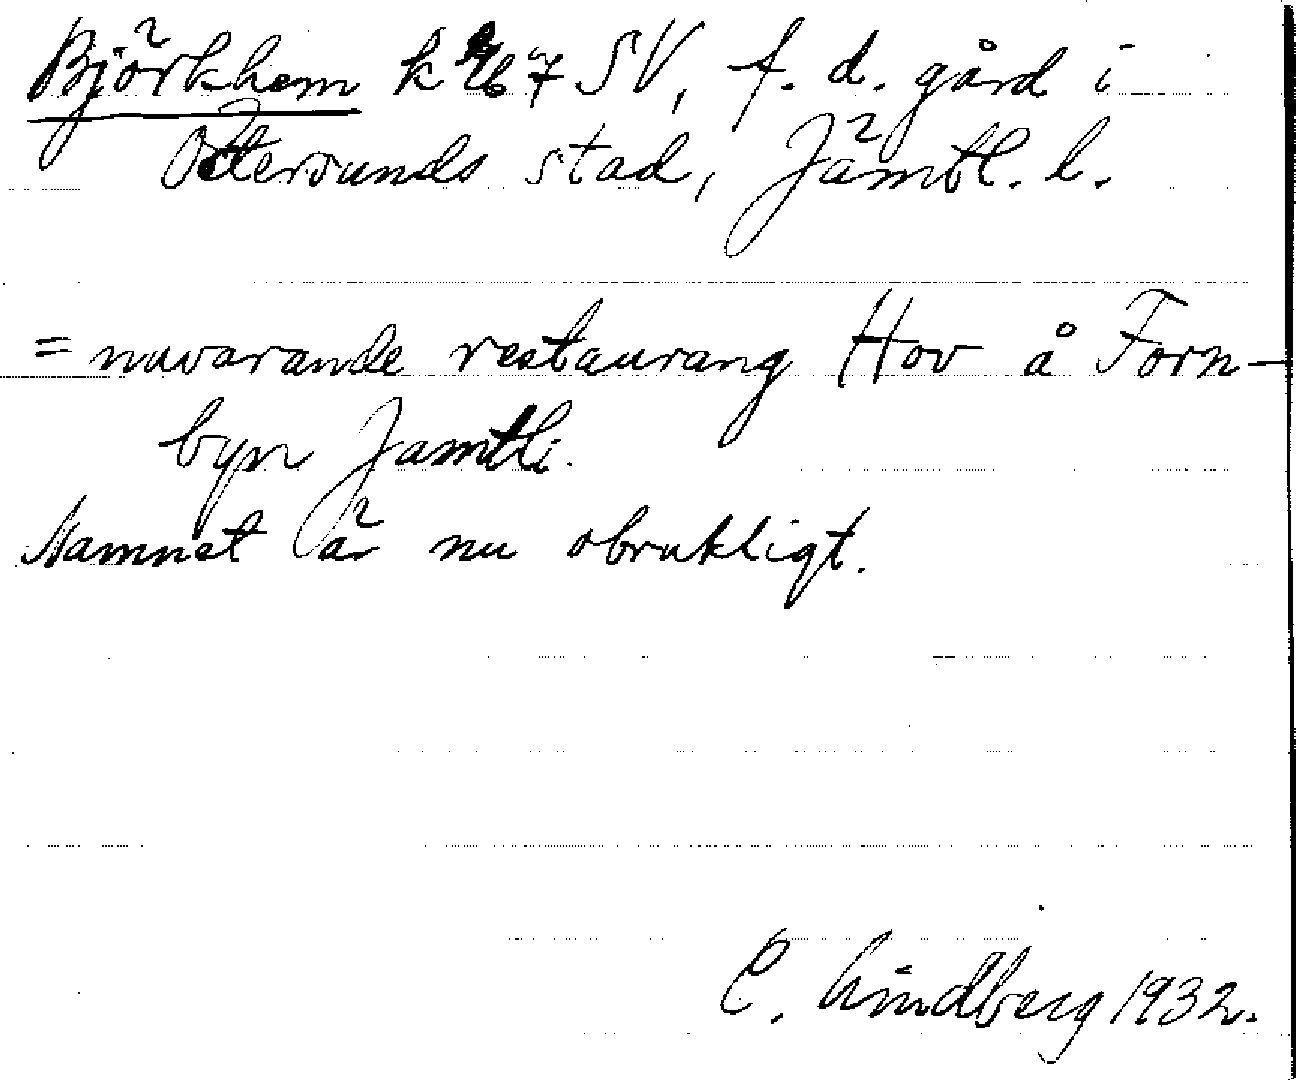 Björkhem k 7 SV, f. d. gård i
Östersunds stad, Jämtl. l.
= nuvarande restaurang Hov å Forn-
byn Jamtli.
Namnet är nu obrukligt.
C. Lindberg 1932.